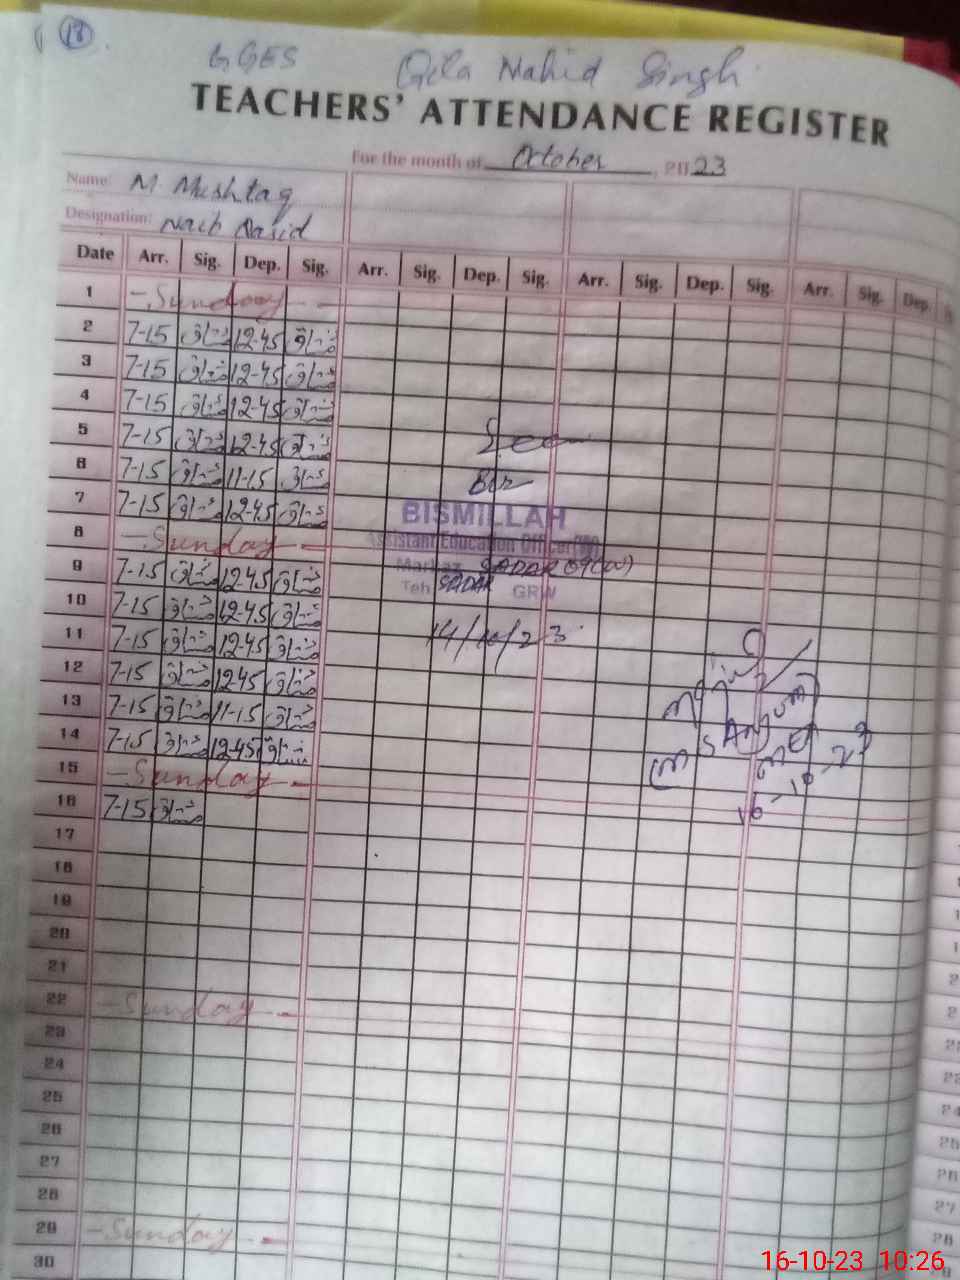 18
GGES Qila Nahid Singh
TEACHERS' ATTENDANCE REGISTER
For the month of October, 2023
Name: M. Mushtaq
Designation: Naib Qasid
Date Arr. Sig. Dep. Sig. Arr. Sig. Dep. Sig. Arr. Sig. Dep. Sig. Arr. Sig. Dep.
1 - Sunday -
2 7-15 مشتاق 12-45 مشتاق
3 7-15 مشتاق 12-45 مشتاق
4 7-15 مشتاق 12-45 مشتاق
5 7-15 مشتاق 12-45 مشتاق
6 7-15 مشتاق 11-15 مشتاق
7 7-15 مشتاق 12-45 مشتاق
8 - Sunday -
9 7-15 مشتاق 12-45 مشتاق
10 7-15 مشتاق 12-45 مشتاق
11 7-15 مشتاق 12-45 مشتاق
12 7-15 مشتاق 12-45 مشتاق
13 7-15 مشتاق 11-15 مشتاق
14 7-15 مشتاق 12-45 مشتاق
15 - Sunday -
16 7-15 مشتاق
17
18
19
20
21
22 - Sunday -
23
24
25
26
27
28
29 - Sunday -
30
Seen
BISMILLAH
Assistant Education Officer (W)
Markaz SADAR 09 (W)
Teh SADAR GRW
14/10/23
(MS Anjum)
MEA
16-10-23
16-10-23 10:26